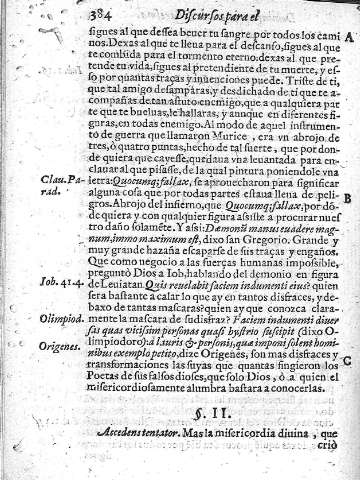 384 Discursos para el
sigues al que dessea beuer tu sangre por todos los cami
nos. Dexas al que te lleua para el descanso, sigues al que
te combida para el tormento eterno. dexas al que pre-
tende tu vida, sigues al pretendiente de tu muerte, y es-
so por quantas traças y inuenciones puede. Triste de ti,
que tal amigo desamparas, y desdichado de ti que te a-
compañas de tan astuto enemigo, que a qualquiera par
te que te bueluas, le hallaras, y aunque en diferentes fi-
guras, en todas enemigo. Al modo de aquel instrumen-
to de guerra que llamaron Murice, era vn abrojo de
tres, ò quatro puntas, hecho de tal suerte, que por don-
de quiera que cayesse, quedaua vna leuantada para en-
clauar al que pisasse, de la qual pintura poniendole vna
letra: Quocumq; fallax, se aprouecharon para significar
alguna cosa que por todas partes estaua llena de peli-
gros. Abrojo del infierno, que Quocumq; fallax, por dõ-
de quiera y con qualquier figura assiste a procurar nues
tro daño solamẽte. Y assi: Dæmonũ manus euadere mag-
num, immo maximum est, dixo san Gregorio. Grande y
muy grande hazaña escaparse de sus traças y engaños.
Que como negocio a las fuerças humanas impossible,
preguntò Dios a Iob, hablando del demonio en figura
de Leuiatan. Quis reuelabit faciem indumenti eius? quien
sera bastante a calar lo que ay en tantos disfraces, y de-
baxo de tantas mascaras? quien ay que conozca clara-
mente la mascara de su disfraz? Faciem indumenti diuer
sas quas vicissim personas quasi hystrio suscipit (dixo O-
limpiodoro) a lauris & personis, quæ imponi solent homi-
nibus exemplo petito, dize Origenes, son mas disfraces y
transformaciones las suyas que quantas fingieron los
Poetas de sus falsos dioses, que solo Dios, ò a quien el
misericordiosamente alumbra bastara a conocerlas.
§. II.
Accedens tentator. Mas la misericordia diuina, que
criò
A
B
Clau. Pa-
rad.
Iob. 41. 4.
Olimpiod.
Origenes.